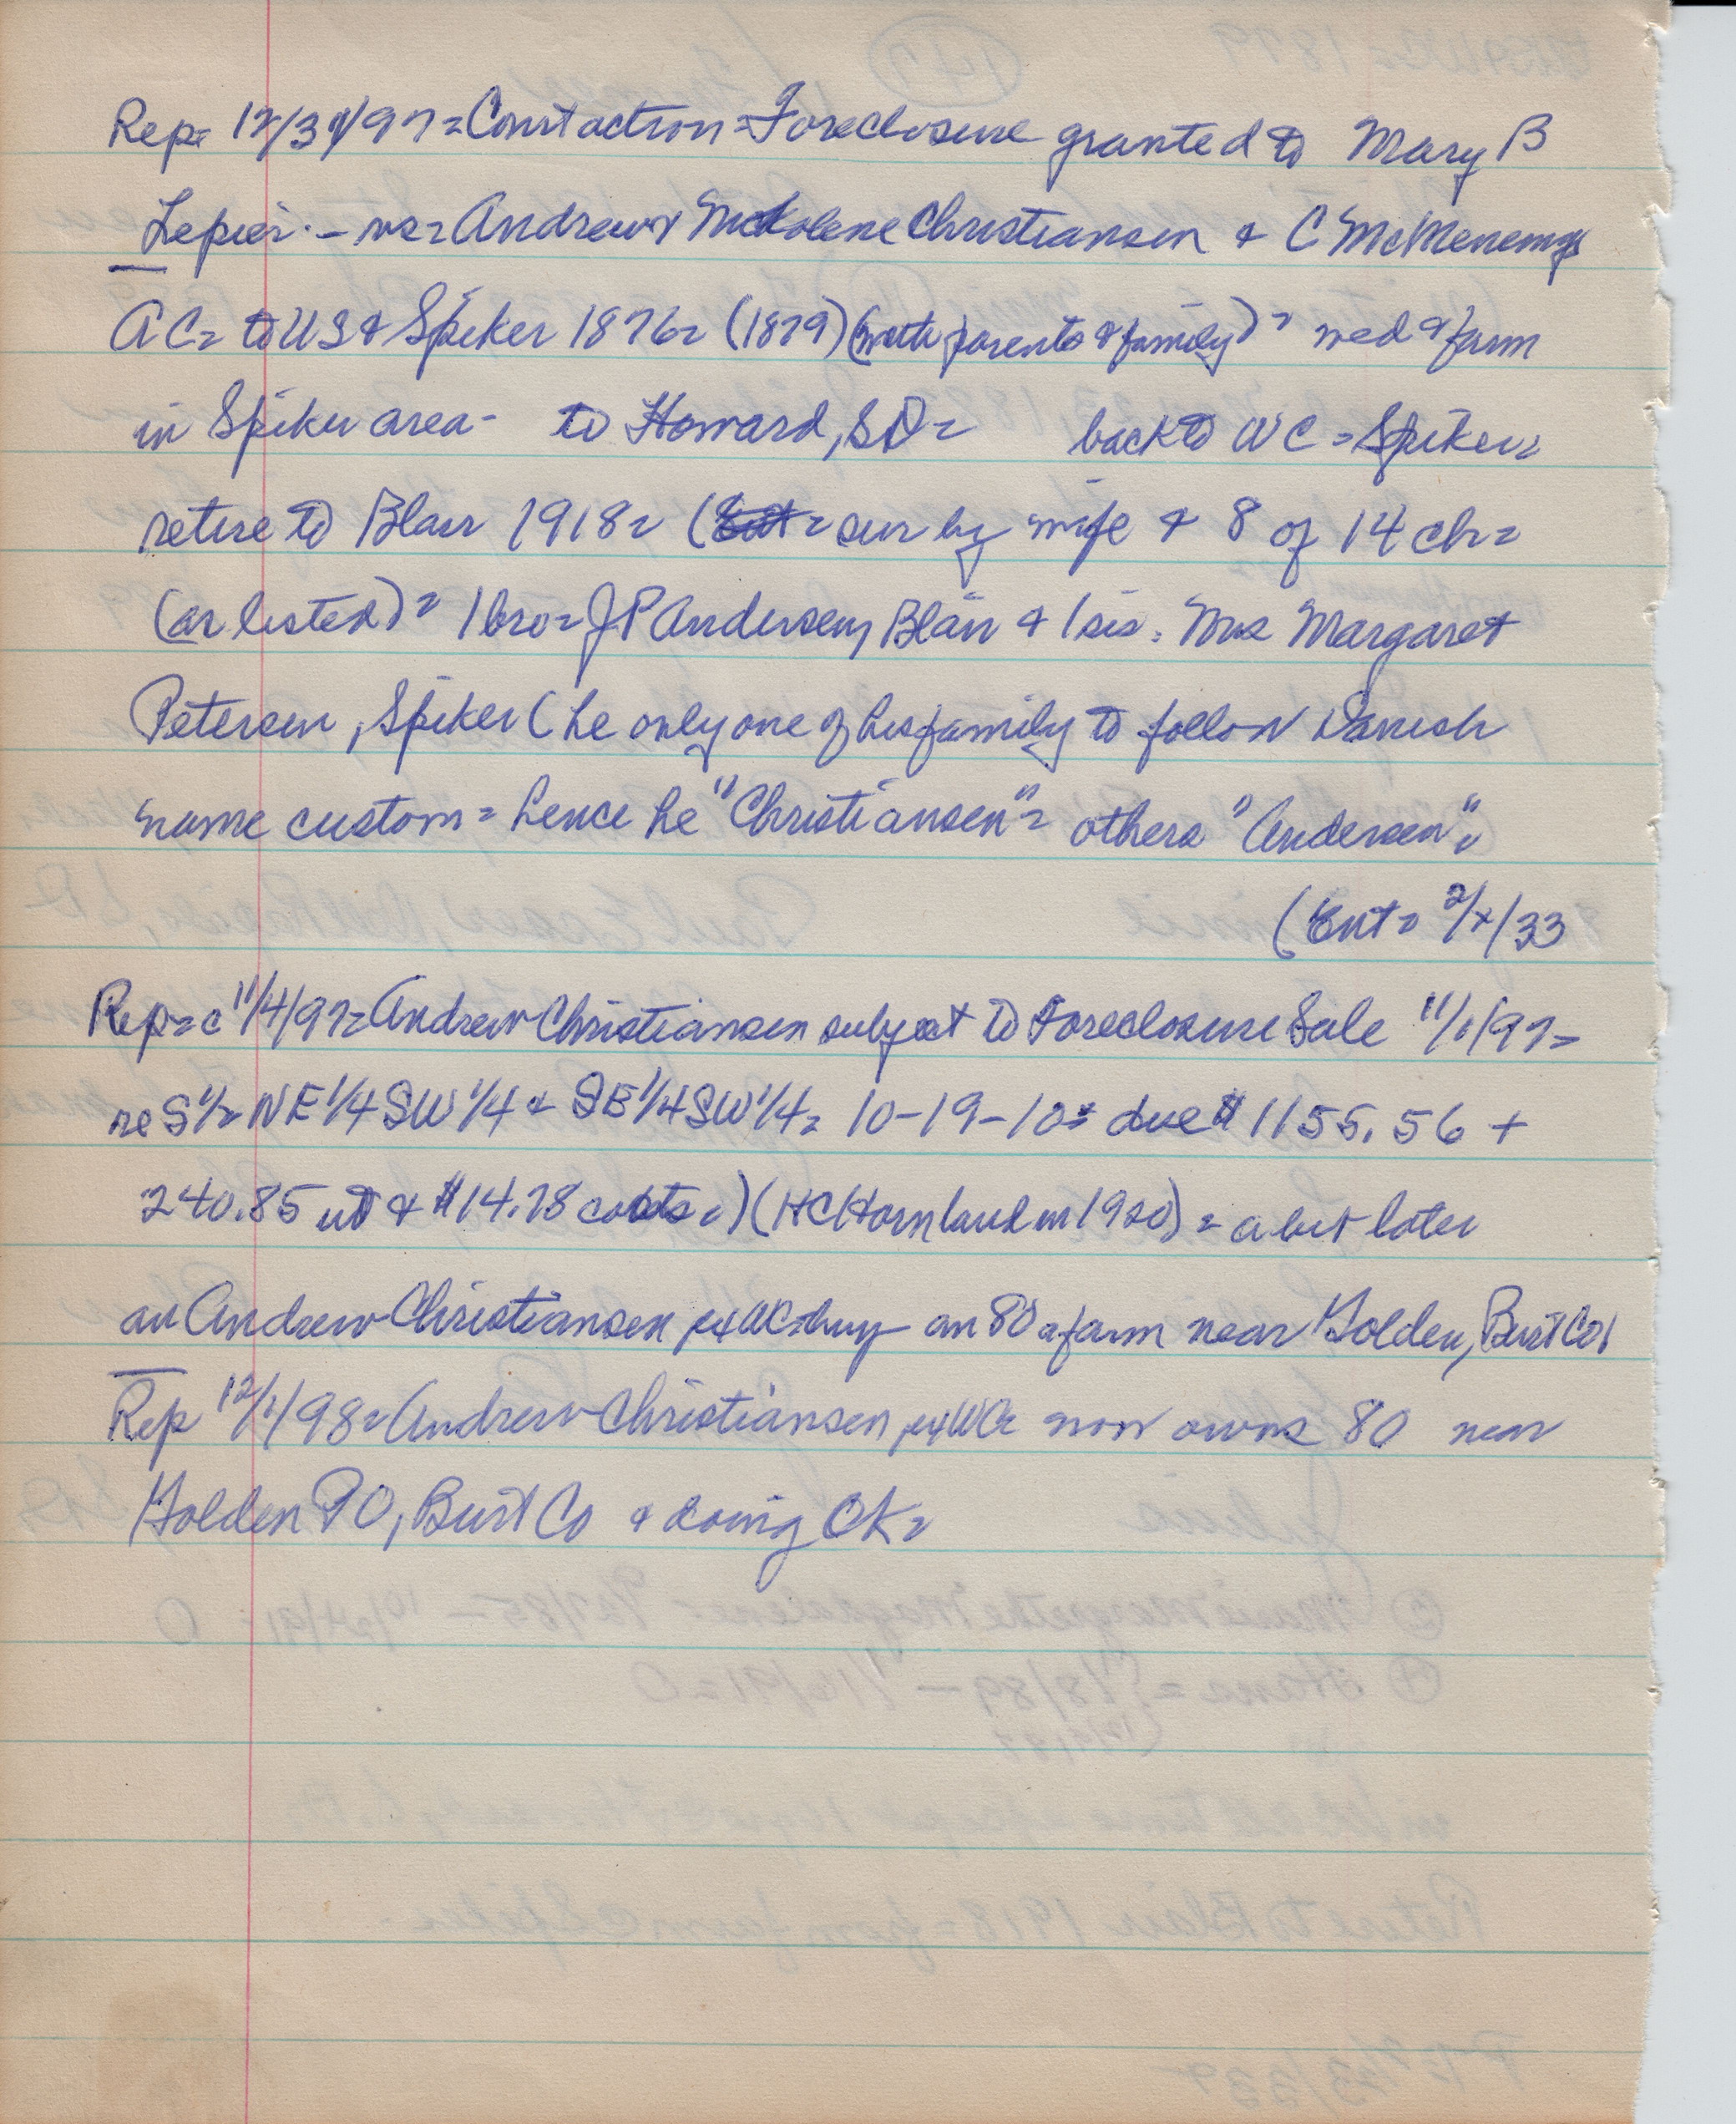 Rep= 12/31/97= Court action= Foreclosure granted to Mary B
Lepier. - vs= Andrew & Nickolene Christiansen & C McMenemy
AC= to US & Spiker 1876= (1879) (with parents & family)= wed & farm
in Spiker area- to Howard, SD= back to WC= Spiker=
retire to Blair 1918= ( sur by wife & 8 of 14 ch=
(as listed)= 1 bro= JP Andersen, Blair & 1 sis= Mrs Margaret
Petersen, Spiker (he only one of his family to follow Danish
name custom= hence he "Christiansen"= others "Andersen".
(Ent= 2/x/33
Rep= c 11/4/97= Andrew Christiansen subject to Foreclosure Sale 11/1/97=
re S1/2 NE1/4 SW1/4 & SE1/4 SW1/4= 10-19-10= due $1155.56 +
240.85 int & $14.78 costs=) (HC Hornland in 1920)= a bit later
an Andrew Christiansen, ex WC= buy an 80 a farm near Golden, Burt Co=
Rep 12/1/98= Andrew Christiansen, ex WC= now owns 80 near
Golden PO, Burt Co & doing OK=